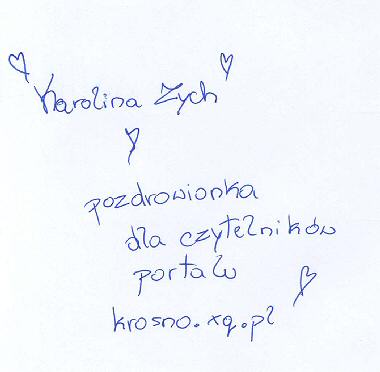 Karolina Zych
pozdrowionka
dla czytelników
portalu
krosno.xq.pl